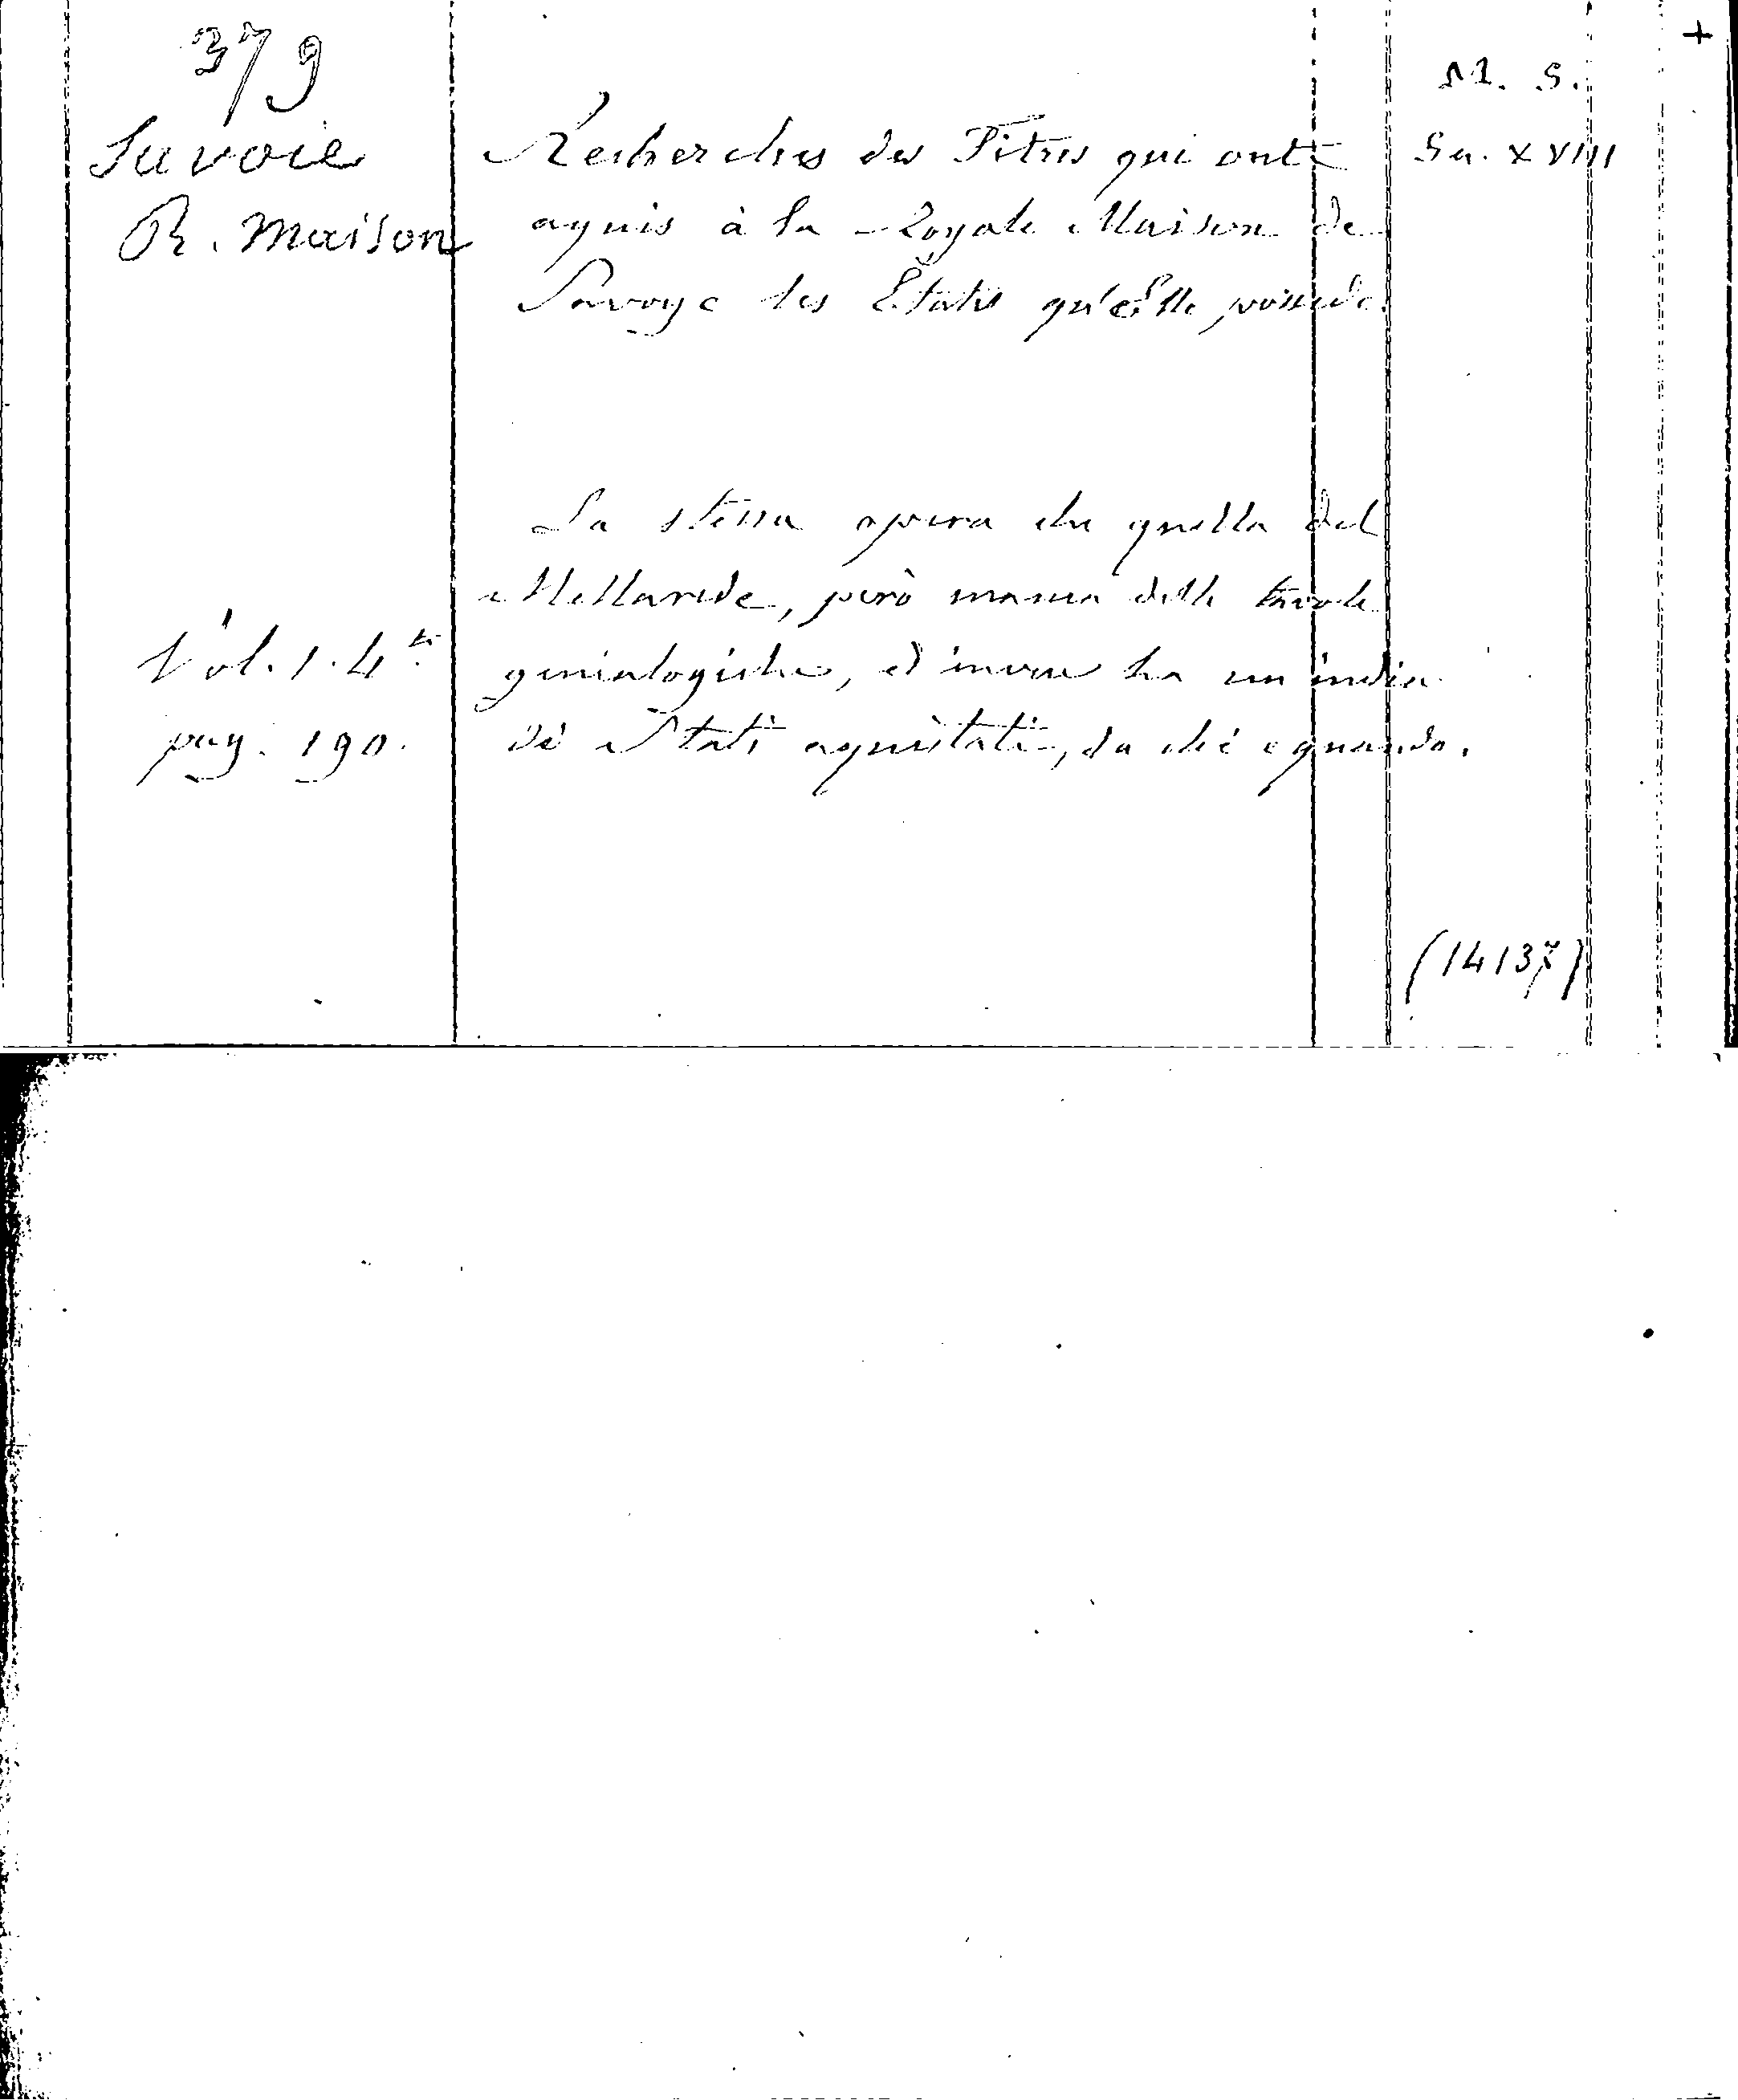 379
+
M. S.
Savoie
R. Maison
Recherches des Titres qui ont
aquis à la Royale Maison de
Savoye les Etats qu'elle possede.
Sec. XVIII
La stessa opera che quella del
Mellarede, però manca delle tavole
genialogiche, ed invece ha un indice
dè Stati aquistati, da chi e quando.
Vol. 1. 4to
pag. 190.
(14137)